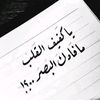 ياكفيف القلب
مافادك البصر..؟!